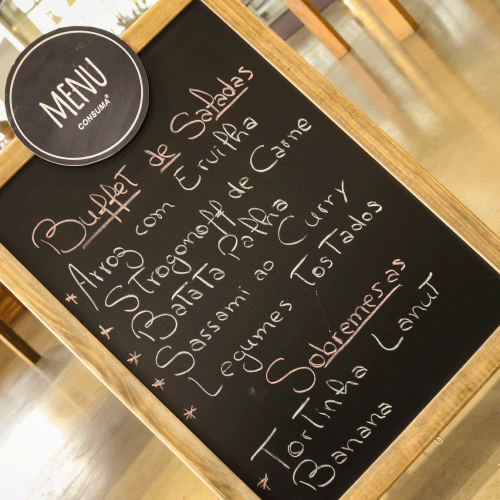 MENU
CONSUMA®
Buffet de Saladas
* Arroz com Ervilha
* Strogonoff de Carne
* Batata Palha
* Sassami ao Curry
* Legumes Tostados
Sobremesas
* Tortinha Lanut
Banana